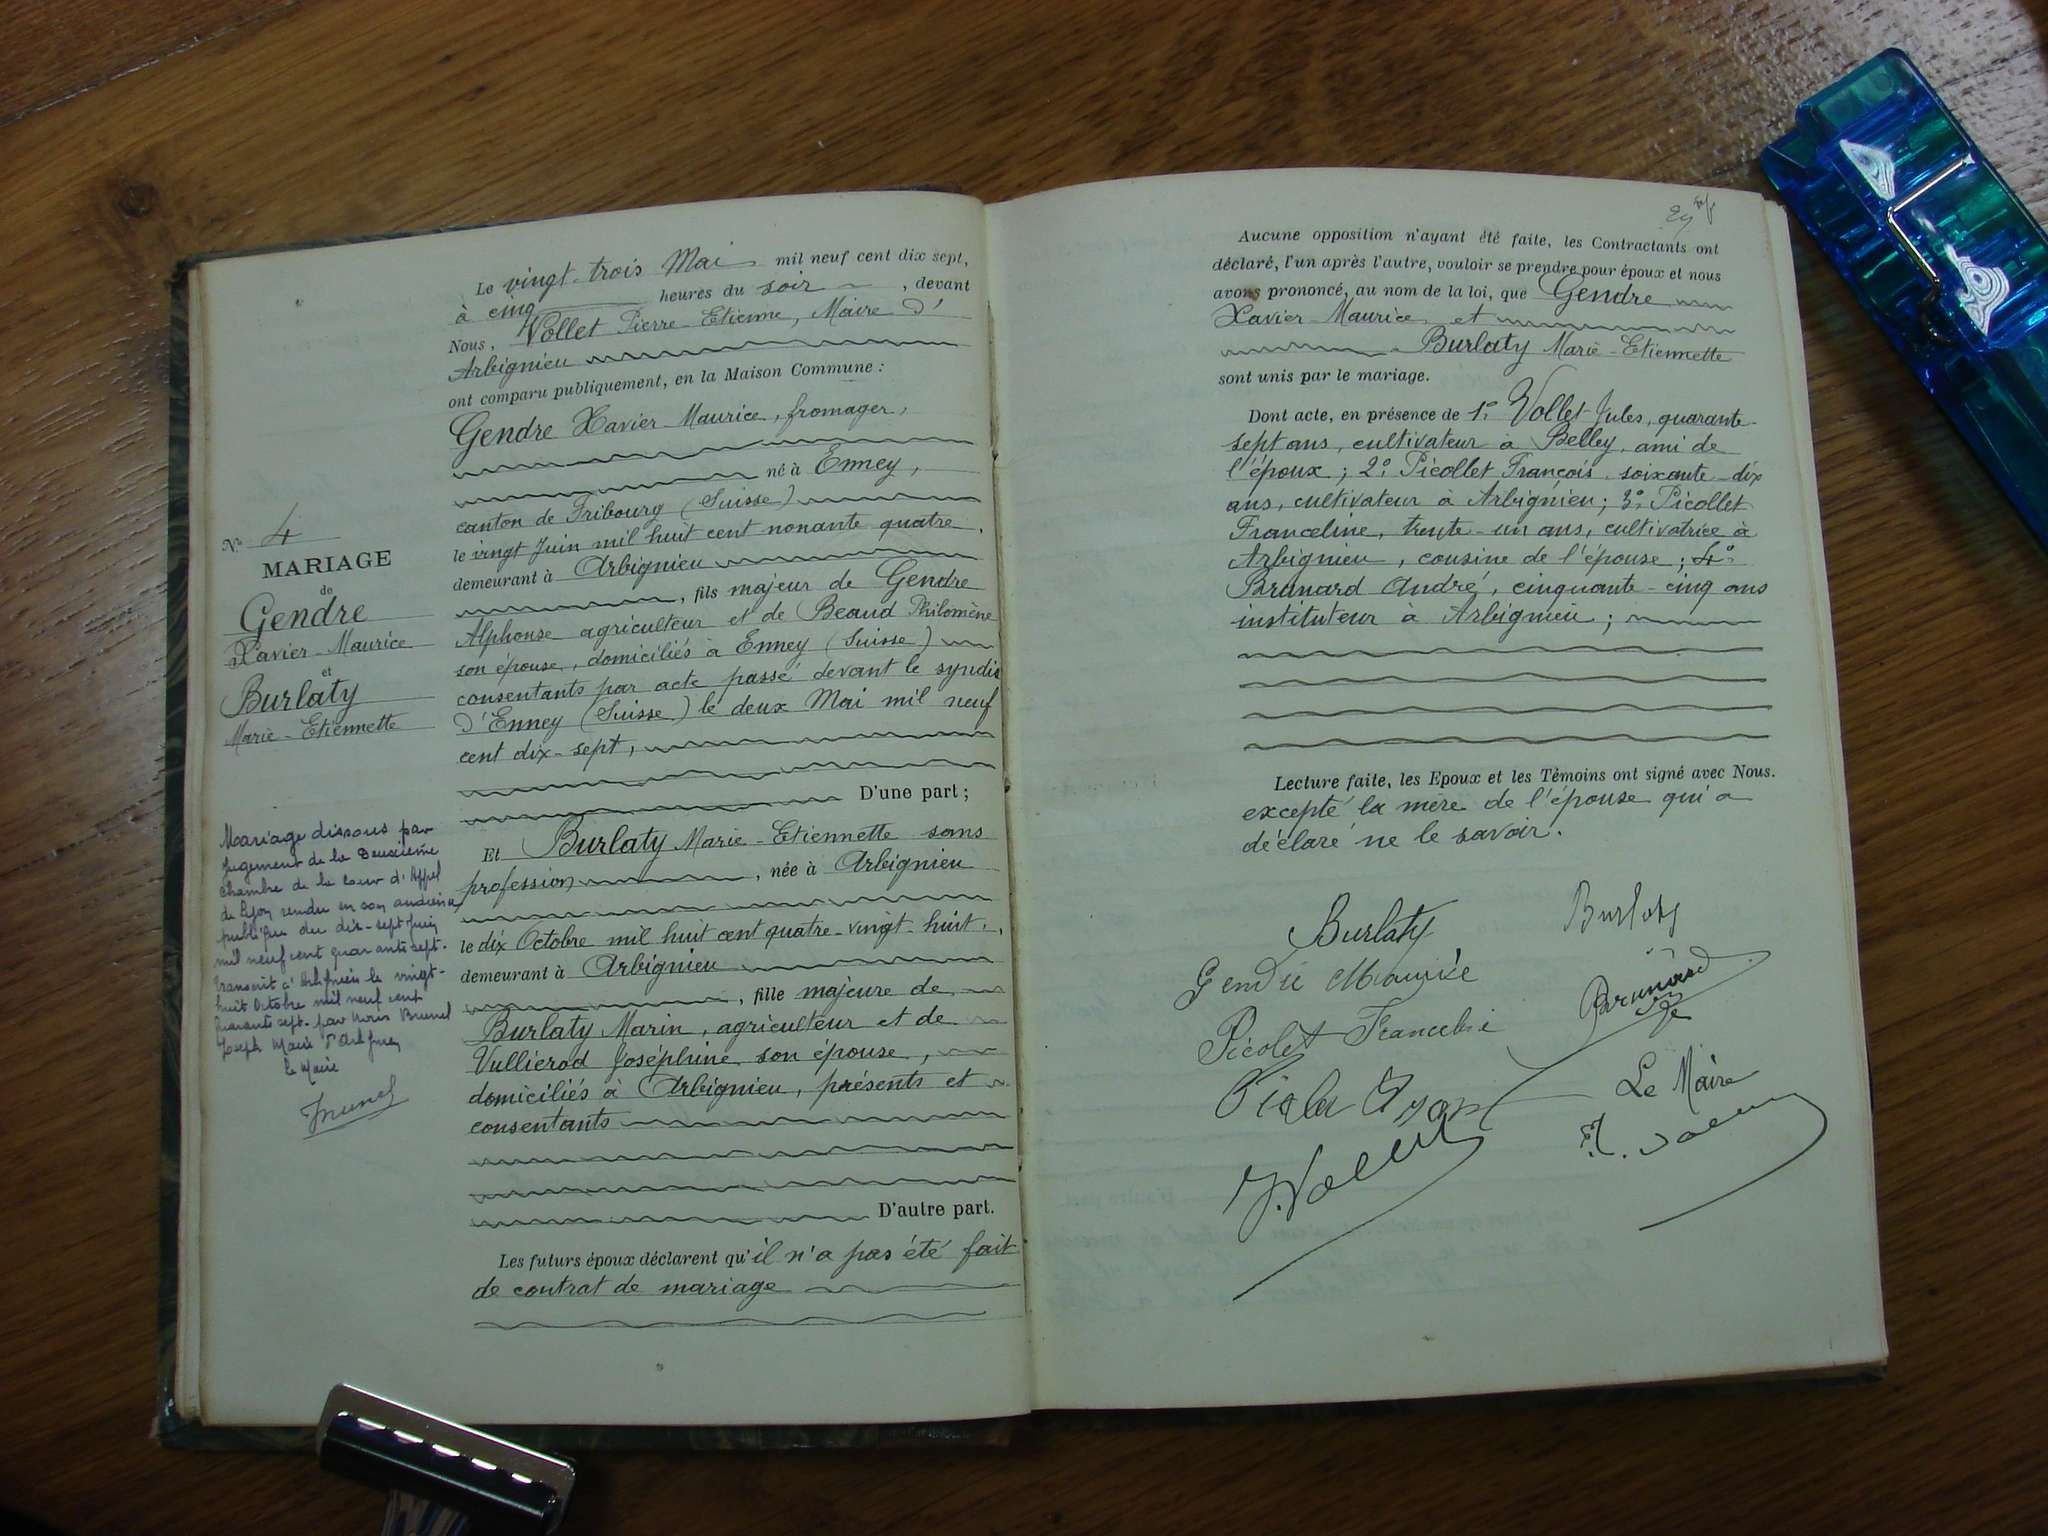 Nº 4
MARIAGE
de
Gendre
Xavier-Maurice
et
Burlaty
Marie-Etiennette
Mariage dissous par
jugement de la Deuxième
chambre de la Cour d'Appel
de Lyon rendu en son audience
publique du dix-sept Juin
mil neuf cent quarante sept.
Transcrit à Arbignieu le vingt-
huit Octobre mil neuf cent
quarante sept. par Nous Brunel
Joseph Maire d'Arbignieu
le Maire
Brunel
Le vingt-trois Mai mil neuf cent dix sept,
à cinq heures du soir, devant
Nous, Vollet Pierre Etienne, Maire d'
Arbignieu
ont comparu publiquement, en la Maison Commune :
Gendre Xavier-Maurice, fromager,
né à Enney,
canton de Fribourg (Suisse)
le vingt Juin mil huit cent nonante quatre,
demeurant à Arbignieu
, fils majeur de Gendre
Alphonse agriculteur et de Beaud Philomène
son épouse, domiciliés à Enney (Suisse)
consentants par acte passé devant le syndic
d'Enney (Suisse) le deux Mai mil neuf
cent dix-sept,
D'une part ;
Et Burlaty Marie-Etiennette sans
profession, née à Arbignieu
le dix Octobre mil huit cent quatre-vingt-huit,
demeurant à Arbignieu
, fille majeure de
Burlaty Marin, agriculteur et de
Vullierod Joséphine son épouse,
domiciliés à Arbignieu, présents et
consentants
D'autre part.
Les futurs époux déclarent qu'il n'a pas été fait
de contrat de mariage
Aucune opposition n'ayant été faite, les Contractants ont
déclaré, l'un après l'autre, vouloir se prendre pour époux et nous
avons prononcé, au nom de la loi, que Gendre
Xavier-Maurice et
Burlaty Marie-Etiennette
sont unis par le mariage.
Dont acte, en présence de 1º Vollet Jules, quarante-
sept ans, cultivateur à Belley, ami de
l'époux ; 2º Picollet François soixante-dix
ans, cultivateur à Arbignieu ; 3º Picollet
Franceline, trente-un ans, cultivatrice à
Arbignieu, cousine de l'épouse ; 4º
Brunard André, cinquante-cinq ans
instituteur à Arbignieu ;
Lecture faite, les Epoux et les Témoins ont signé avec Nous.
excepté la mère de l'épouse qui a
déclaré ne le savoir.
Burlaty Burlaty
Gendre Maurice
Brunard
Picolet Franceline
Le Maire
J. Vollet